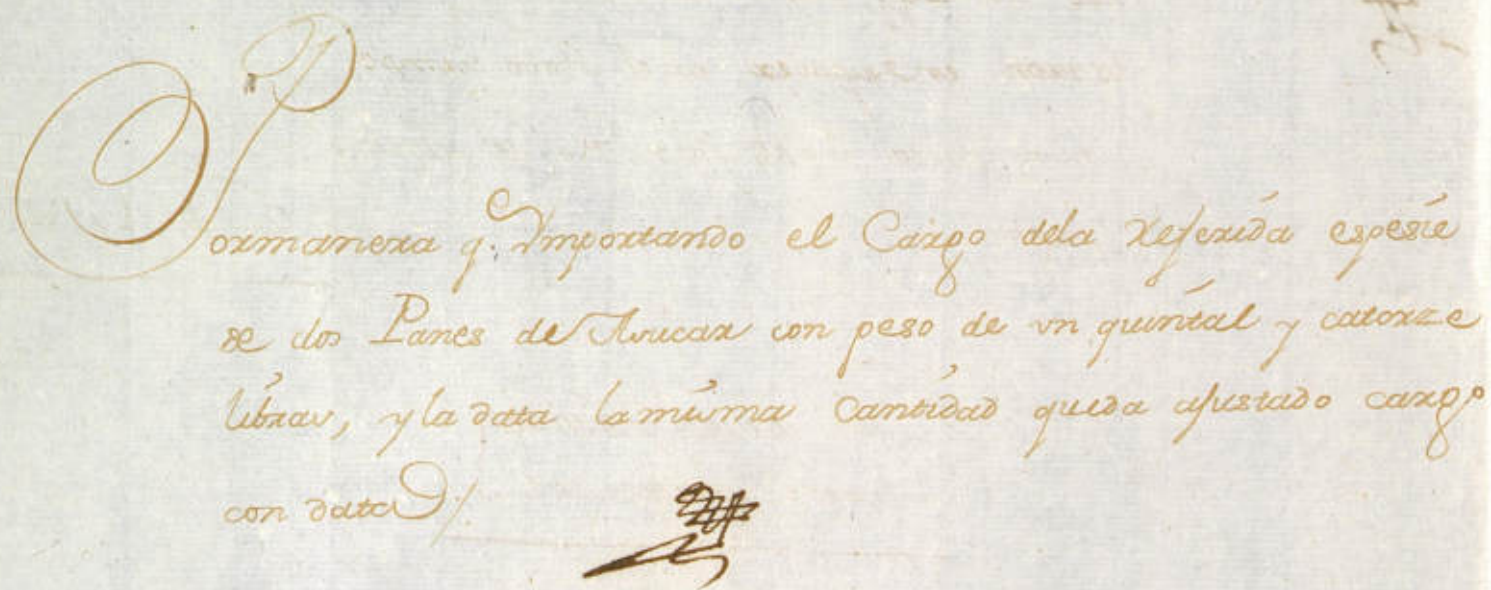 Pormanera q. Ymportando el Cargo dela referida espesie
de dos Panes de Asucar con peso de vn quintal y catorze
libras, y la data la misma Cantidad queda ajustado cargo
con data /